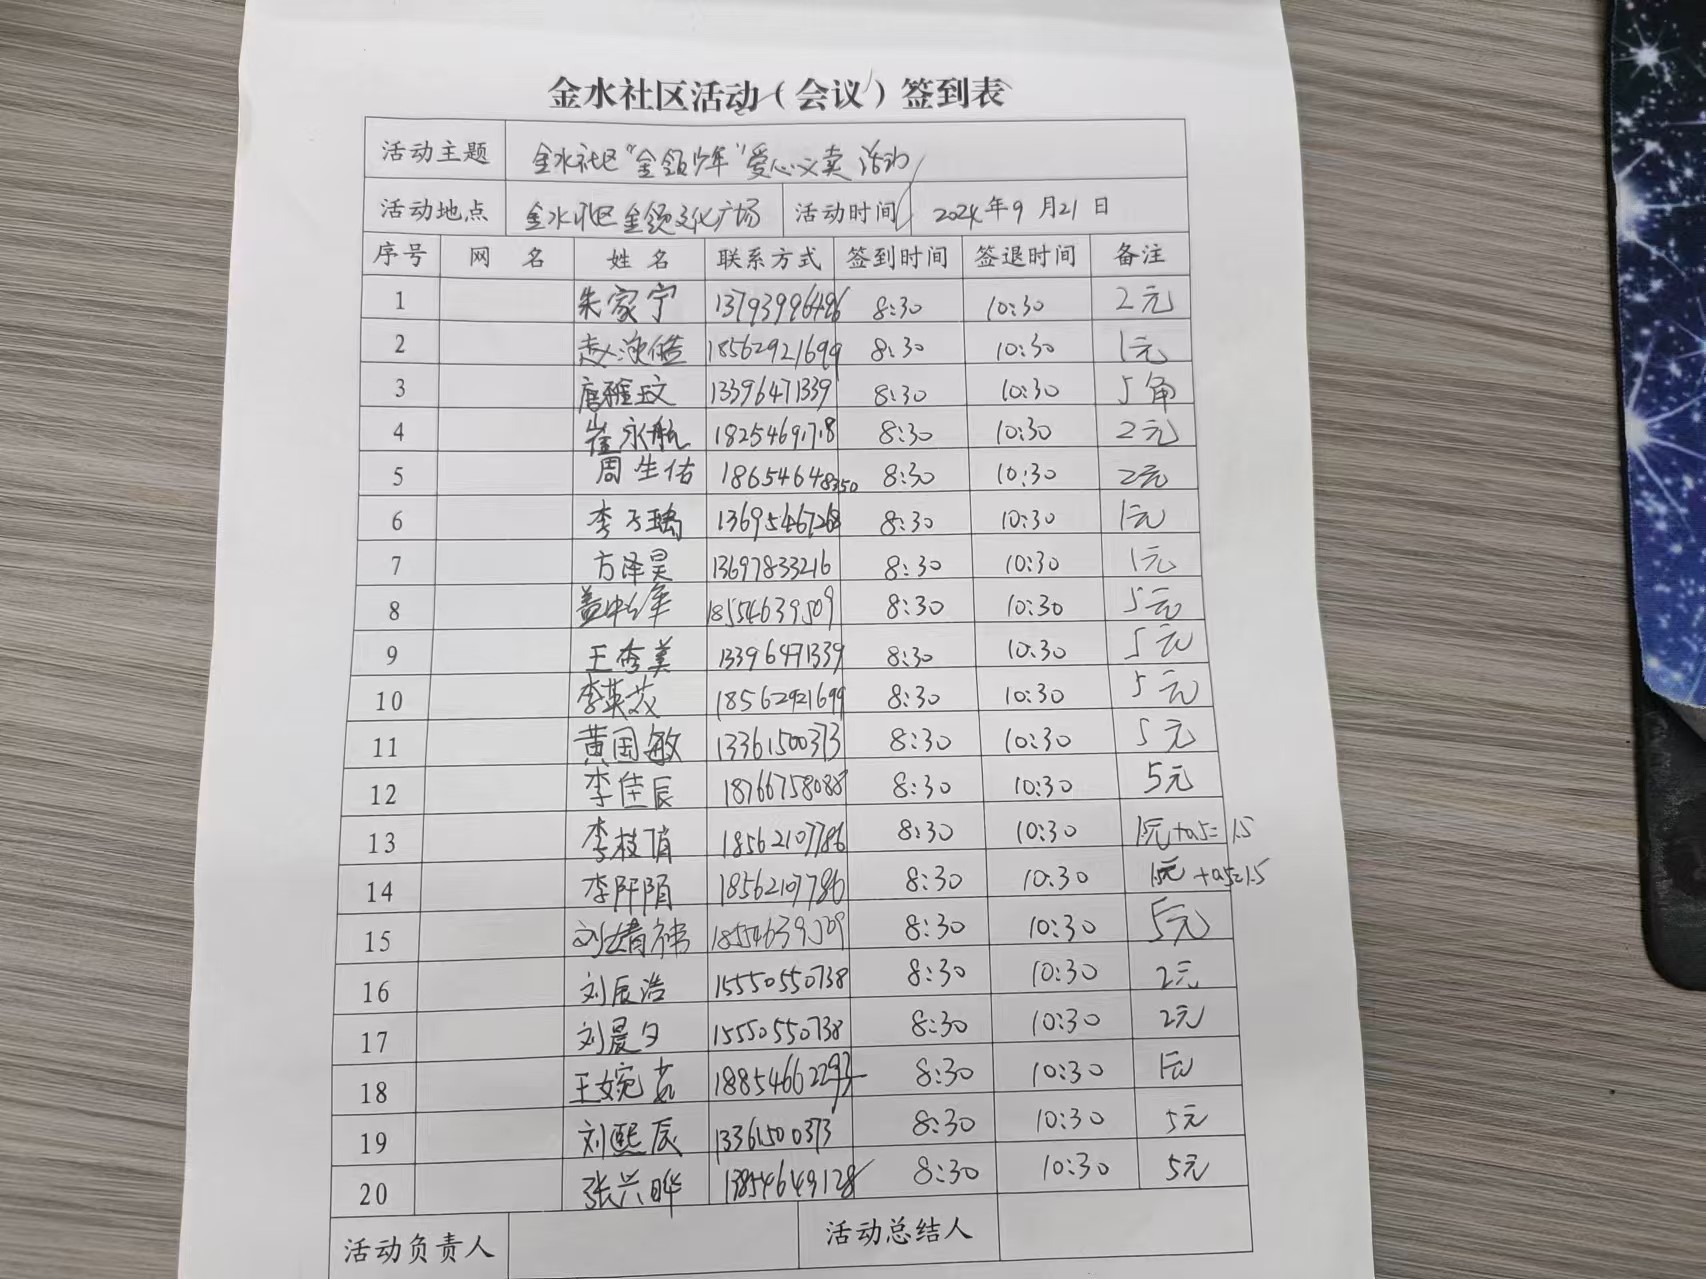 金水社区活动（会议）签到表
活动主题 金水社区“金领少年”爱心义卖活动
活动地点 金水社区金领文化广场 活动时间 2024年9月21日
序号 网 名 姓名 联系方式 签到时间 签退时间 备注
1 朱家宁 13793996496 8:30 10:30 2元
2 赵 18562921699 8:30 10:30 1元
3 唐雅玟 13396471339 8:30 10:30 5角
4 崔永航 8:30 10:30 2元
5 周生佑 18654648350 8:30 10:30 2元
6 李子瑀 8:30 10:30 1元
7 方泽昊 13697833216 8:30 10:30 1元
8 盖中华 18554639509 8:30 10:30 5元
9 王秀美 13396471339 8:30 10:30 5元
10 李英 18562921699 8:30 10:30 5元
11 黄国敏 13361500373 8:30 10:30 5元
12 李佳辰 18766758088 8:30 10:30 5元
13 李枝俏 18562107786 8:30 10:30 1元+0.5=1.5
14 李阡陌 18562107786 8:30 10:30 1元+0.5=1.5
15 刘婧祎 18554639509 8:30 10:30 5元
16 刘辰浩 15550550738 8:30 10:30 2元
17 刘晨夕 15550550738 8:30 10:30 2元
18 王婉 8:30 10:30 1元
19 刘熙辰 13361500373 8:30 10:30 5元
20 张兴晔 13854649128 8:30 10:30 5元
活动负责人 活动总结人